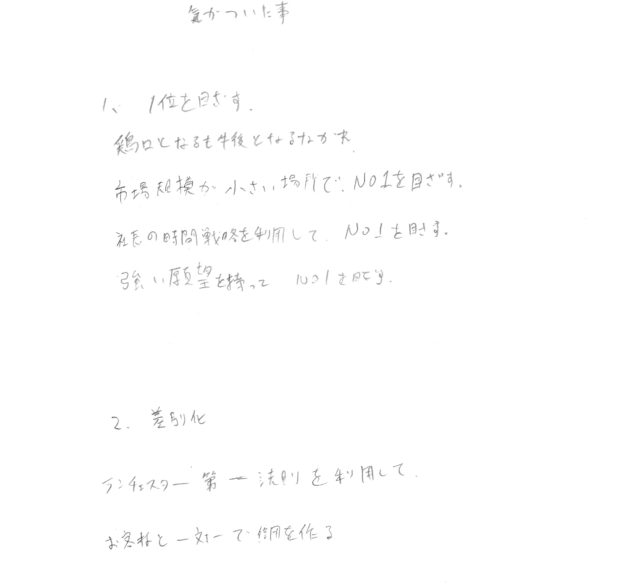 気がついた事
1、 1位を目ざす.
鶏口となるも牛後となるなかれ
市場規模が小さい場所で、NO1を目ざす.
社長の時間戦略を利用して、NO1を目ざす.
強い願望を持って NO1を目ざす.
2. 差別化
ランチェスター第一法則を利用して.
お客様と一対一で 信用を作る